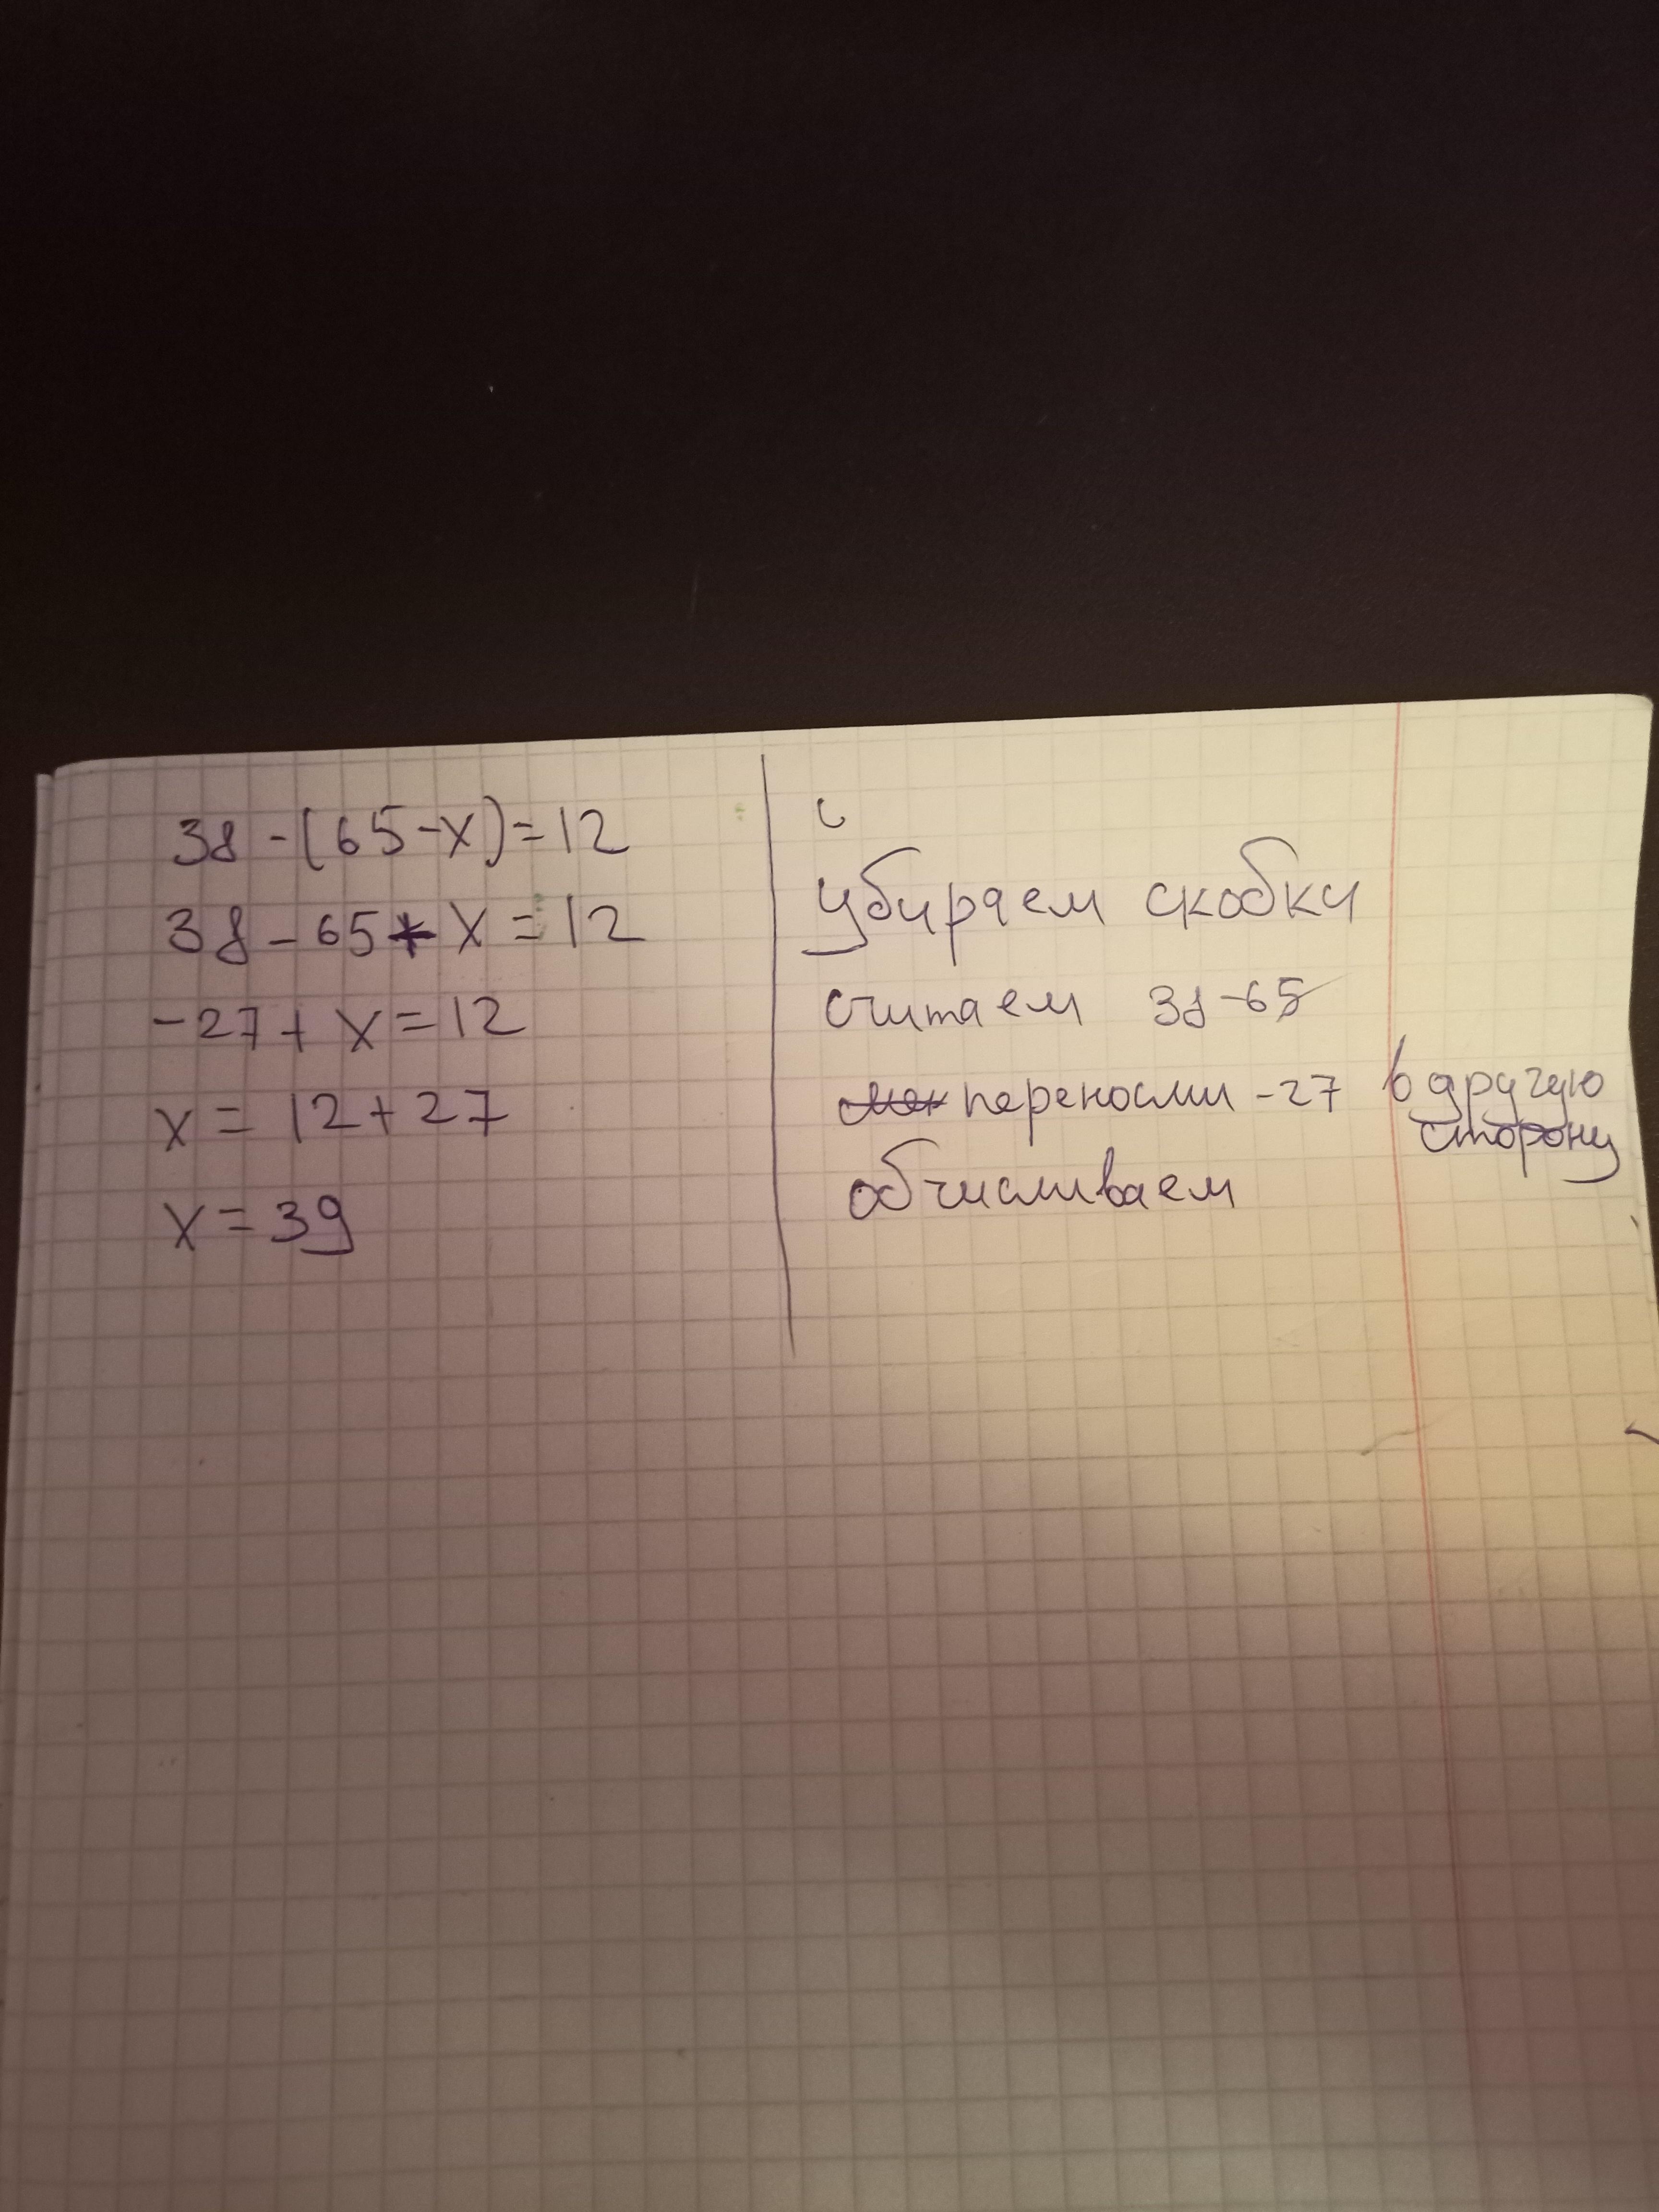 38-(65-x)=12
38-65+x=12
-27+x=12
x=12+27
x=39
убираем скобки
считаем 38-65
переносим -27 в другую
сторону
обчисливаем